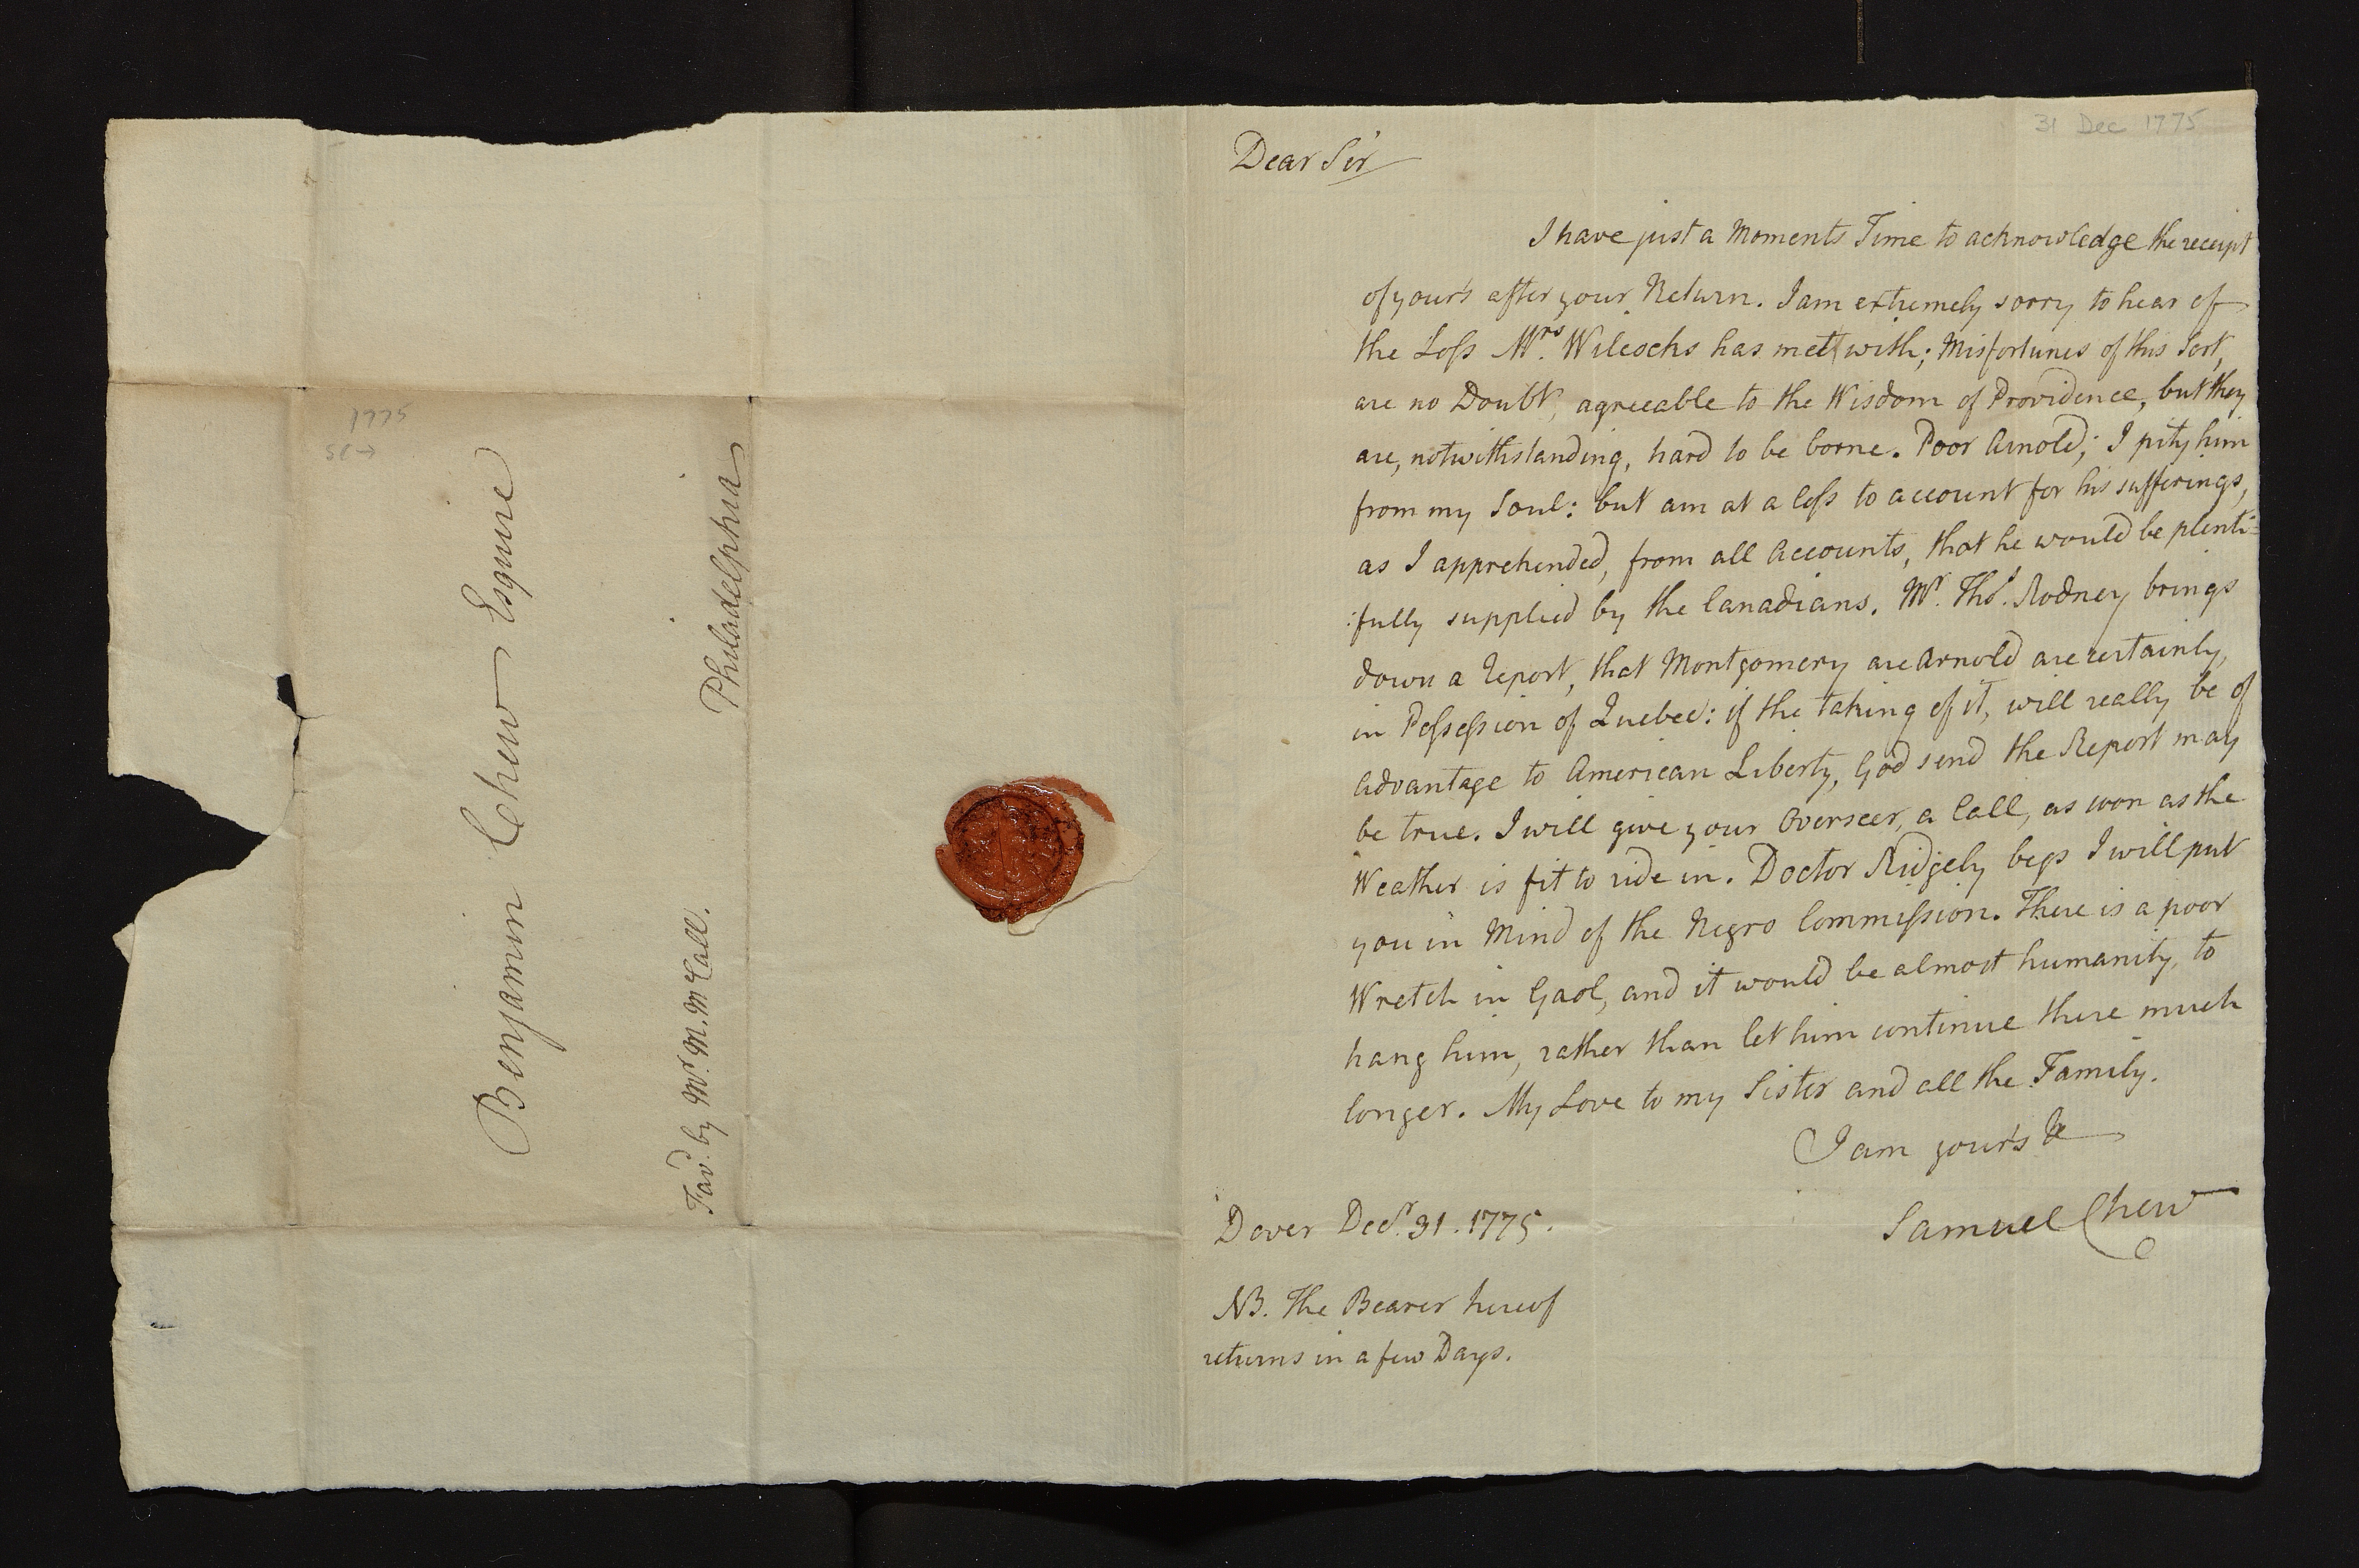 1775
SC →
Benjamin Chew Esquire
Philadelphia
Favd. by Mr. M. McCall.
31 Dec 1775
Dear Sir
I have just a Moments Time to acknowledge the receipt
of your's after your Return. I am extremely sorry to hear of
the Loss Mrs. Wilcocks has met with; Misfortunes of this Sort,
are no Doubt, agreeable to the Wisdom of Providence, but they
are, notwithstanding, hard to be borne. Poor Arnold; I pity him
from my Soul: but am at a loss to account for his sufferings,
as I apprehended, from all Accounts, that he would be plenti=
:fully supplied by the Canadians. Mr. Thos. Rodney brings
down a Report, that Montgomery are Arnold are certainly,
in Possession of Quebec: if the taking of it, will really be of
Advantage to American Liberty, God send the Report may
be true. I will give your Overseer, a Call, as soon as the
Weather is fit to ride in. Doctor Ridgely begs I will put
you in Mind of the Negro Commission. There is a poor
Wretch in Gaol, and it would be almost humanity, to
hang him, rather than let him continue there much
longer. My Love to my Sister and all the Family.
I am your's &c
Samuel Chew
Dover Decr. 31. 1775.
NB. The Bearer hereof
returns in a few Days.